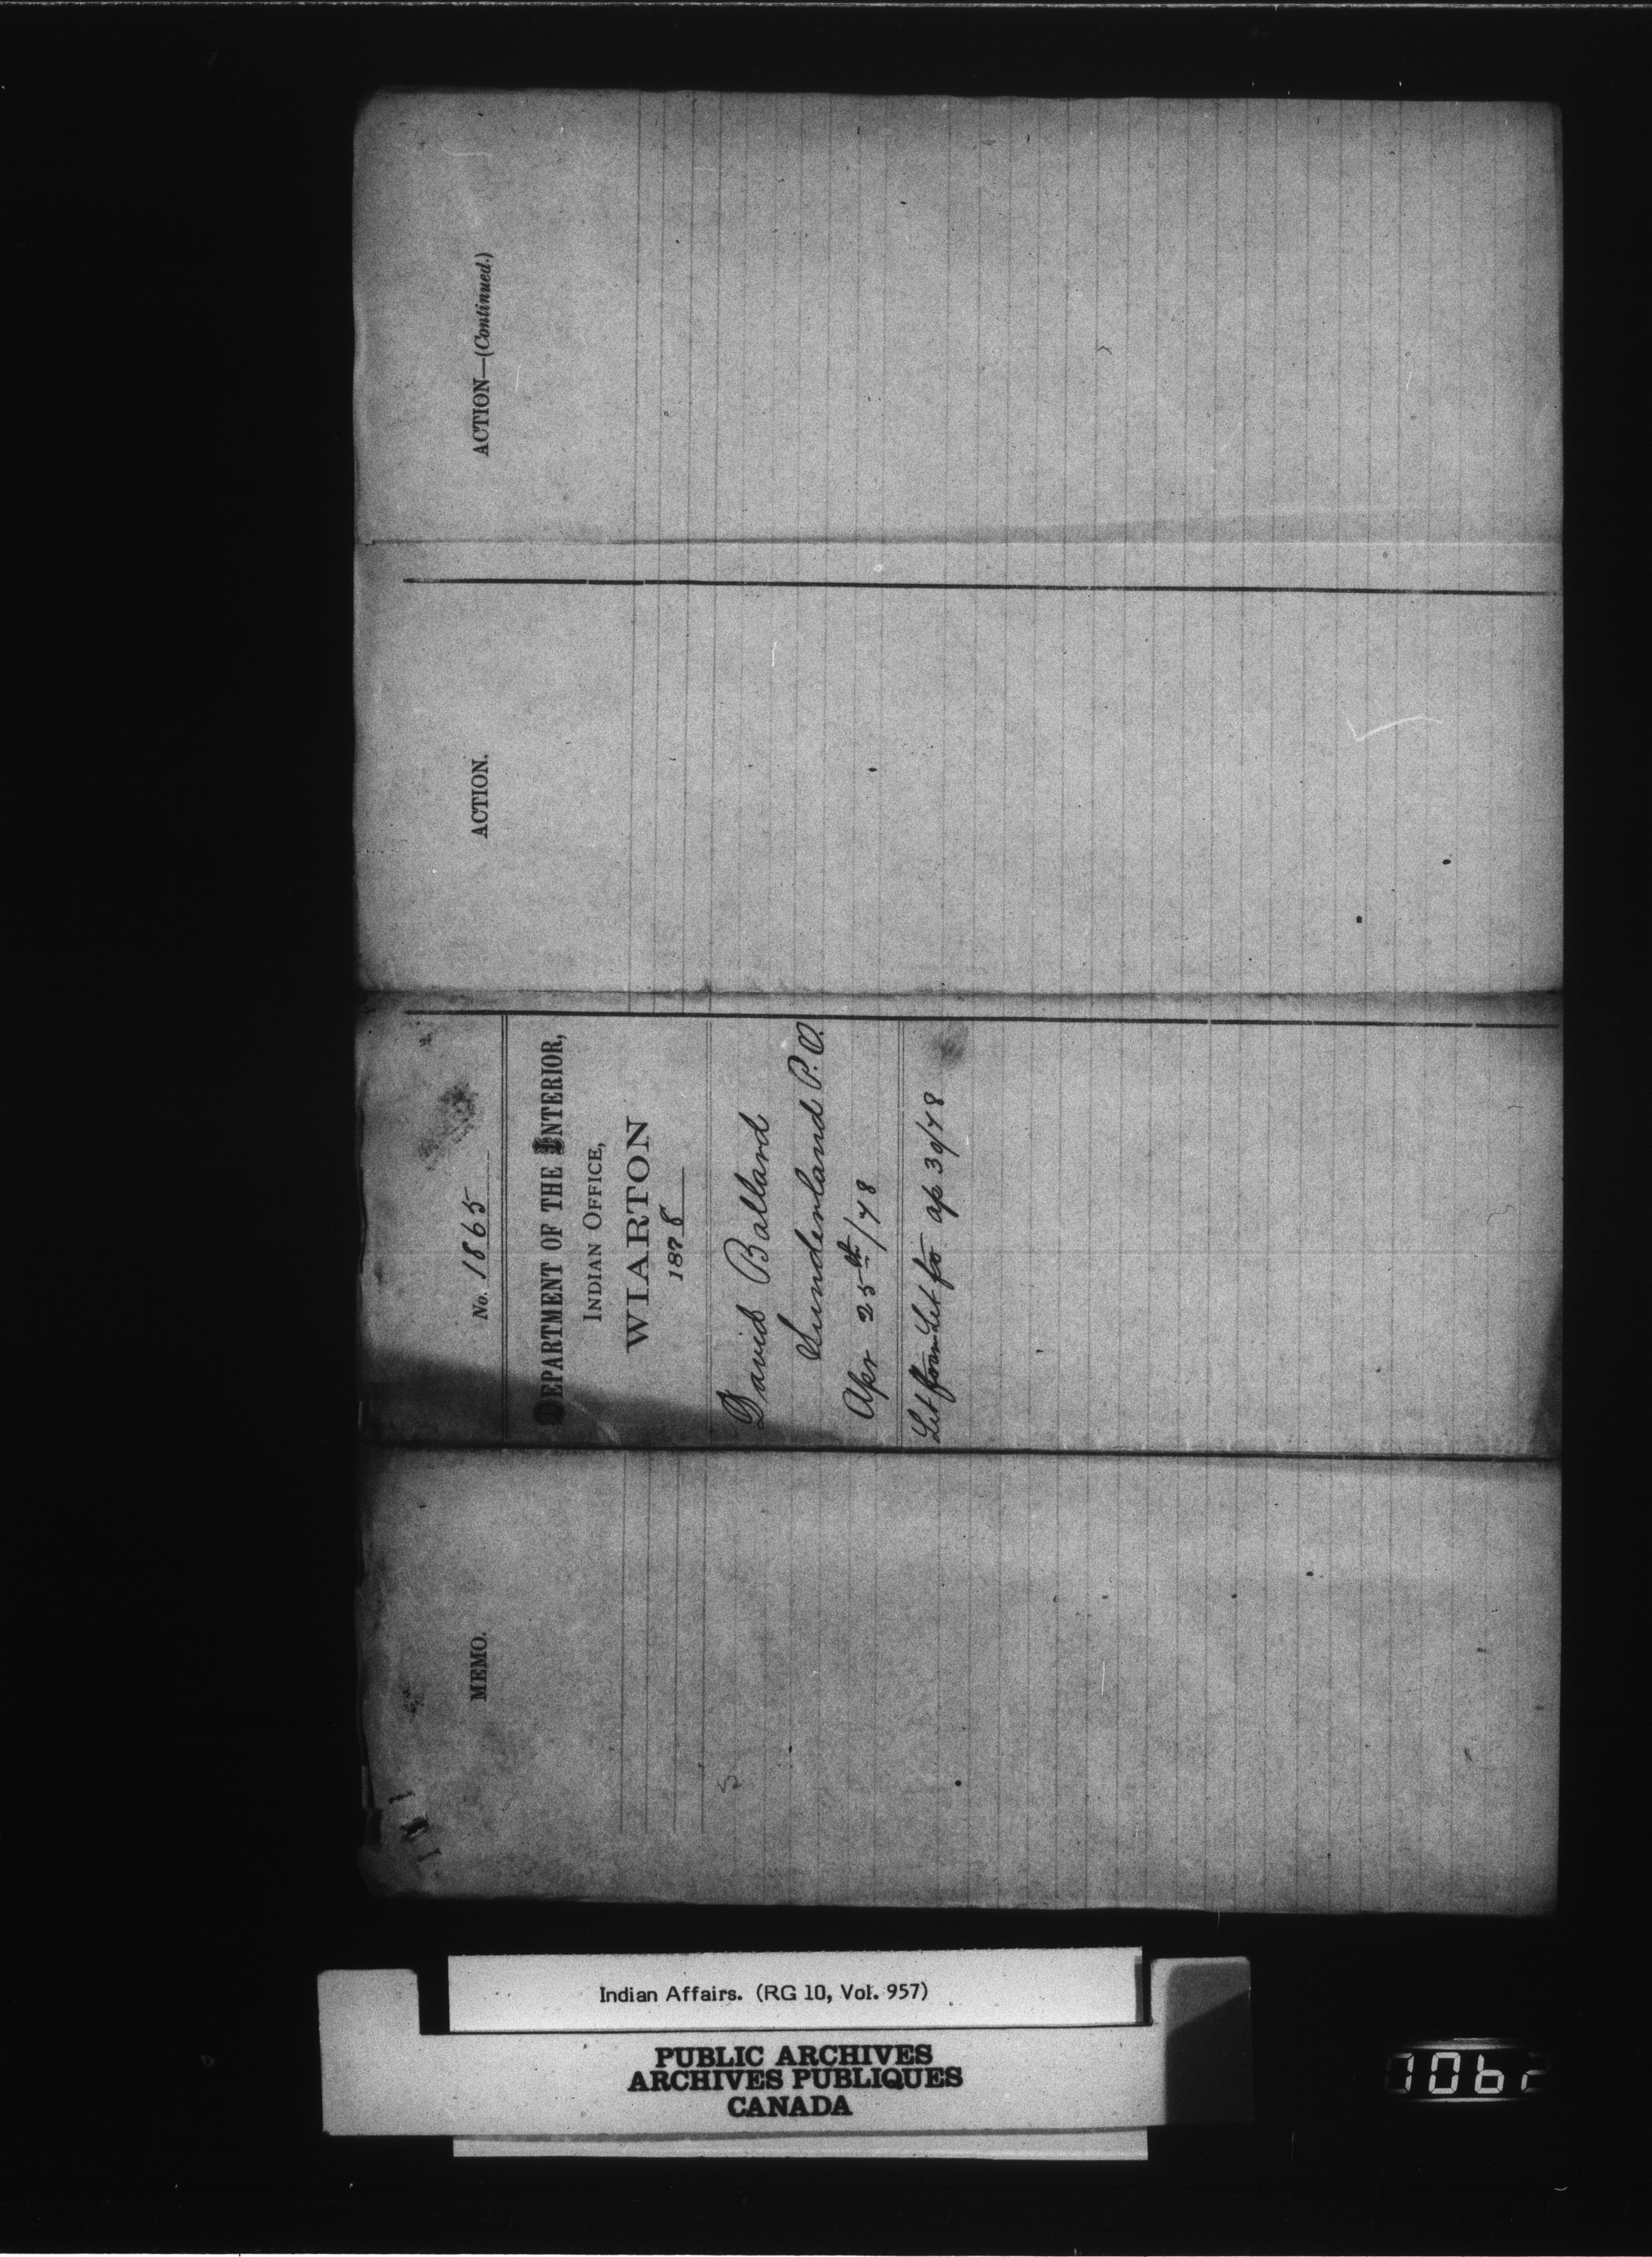 MEMO.
No. 1865
DEPARTMENT OF THE INTERIOR,
INDIAN OFFICE,
WIARTON
1878
David Ballard
Sunderland P.O.
Apr 25th/78
Let from Let fo ap 30/78
ACTION.
ACTION—(Continued.)
Indian Affairs. (RG 10, Vol. 957)
PUBLIC ARCHIVES
ARCHIVES PUBLIQUES
CANADA